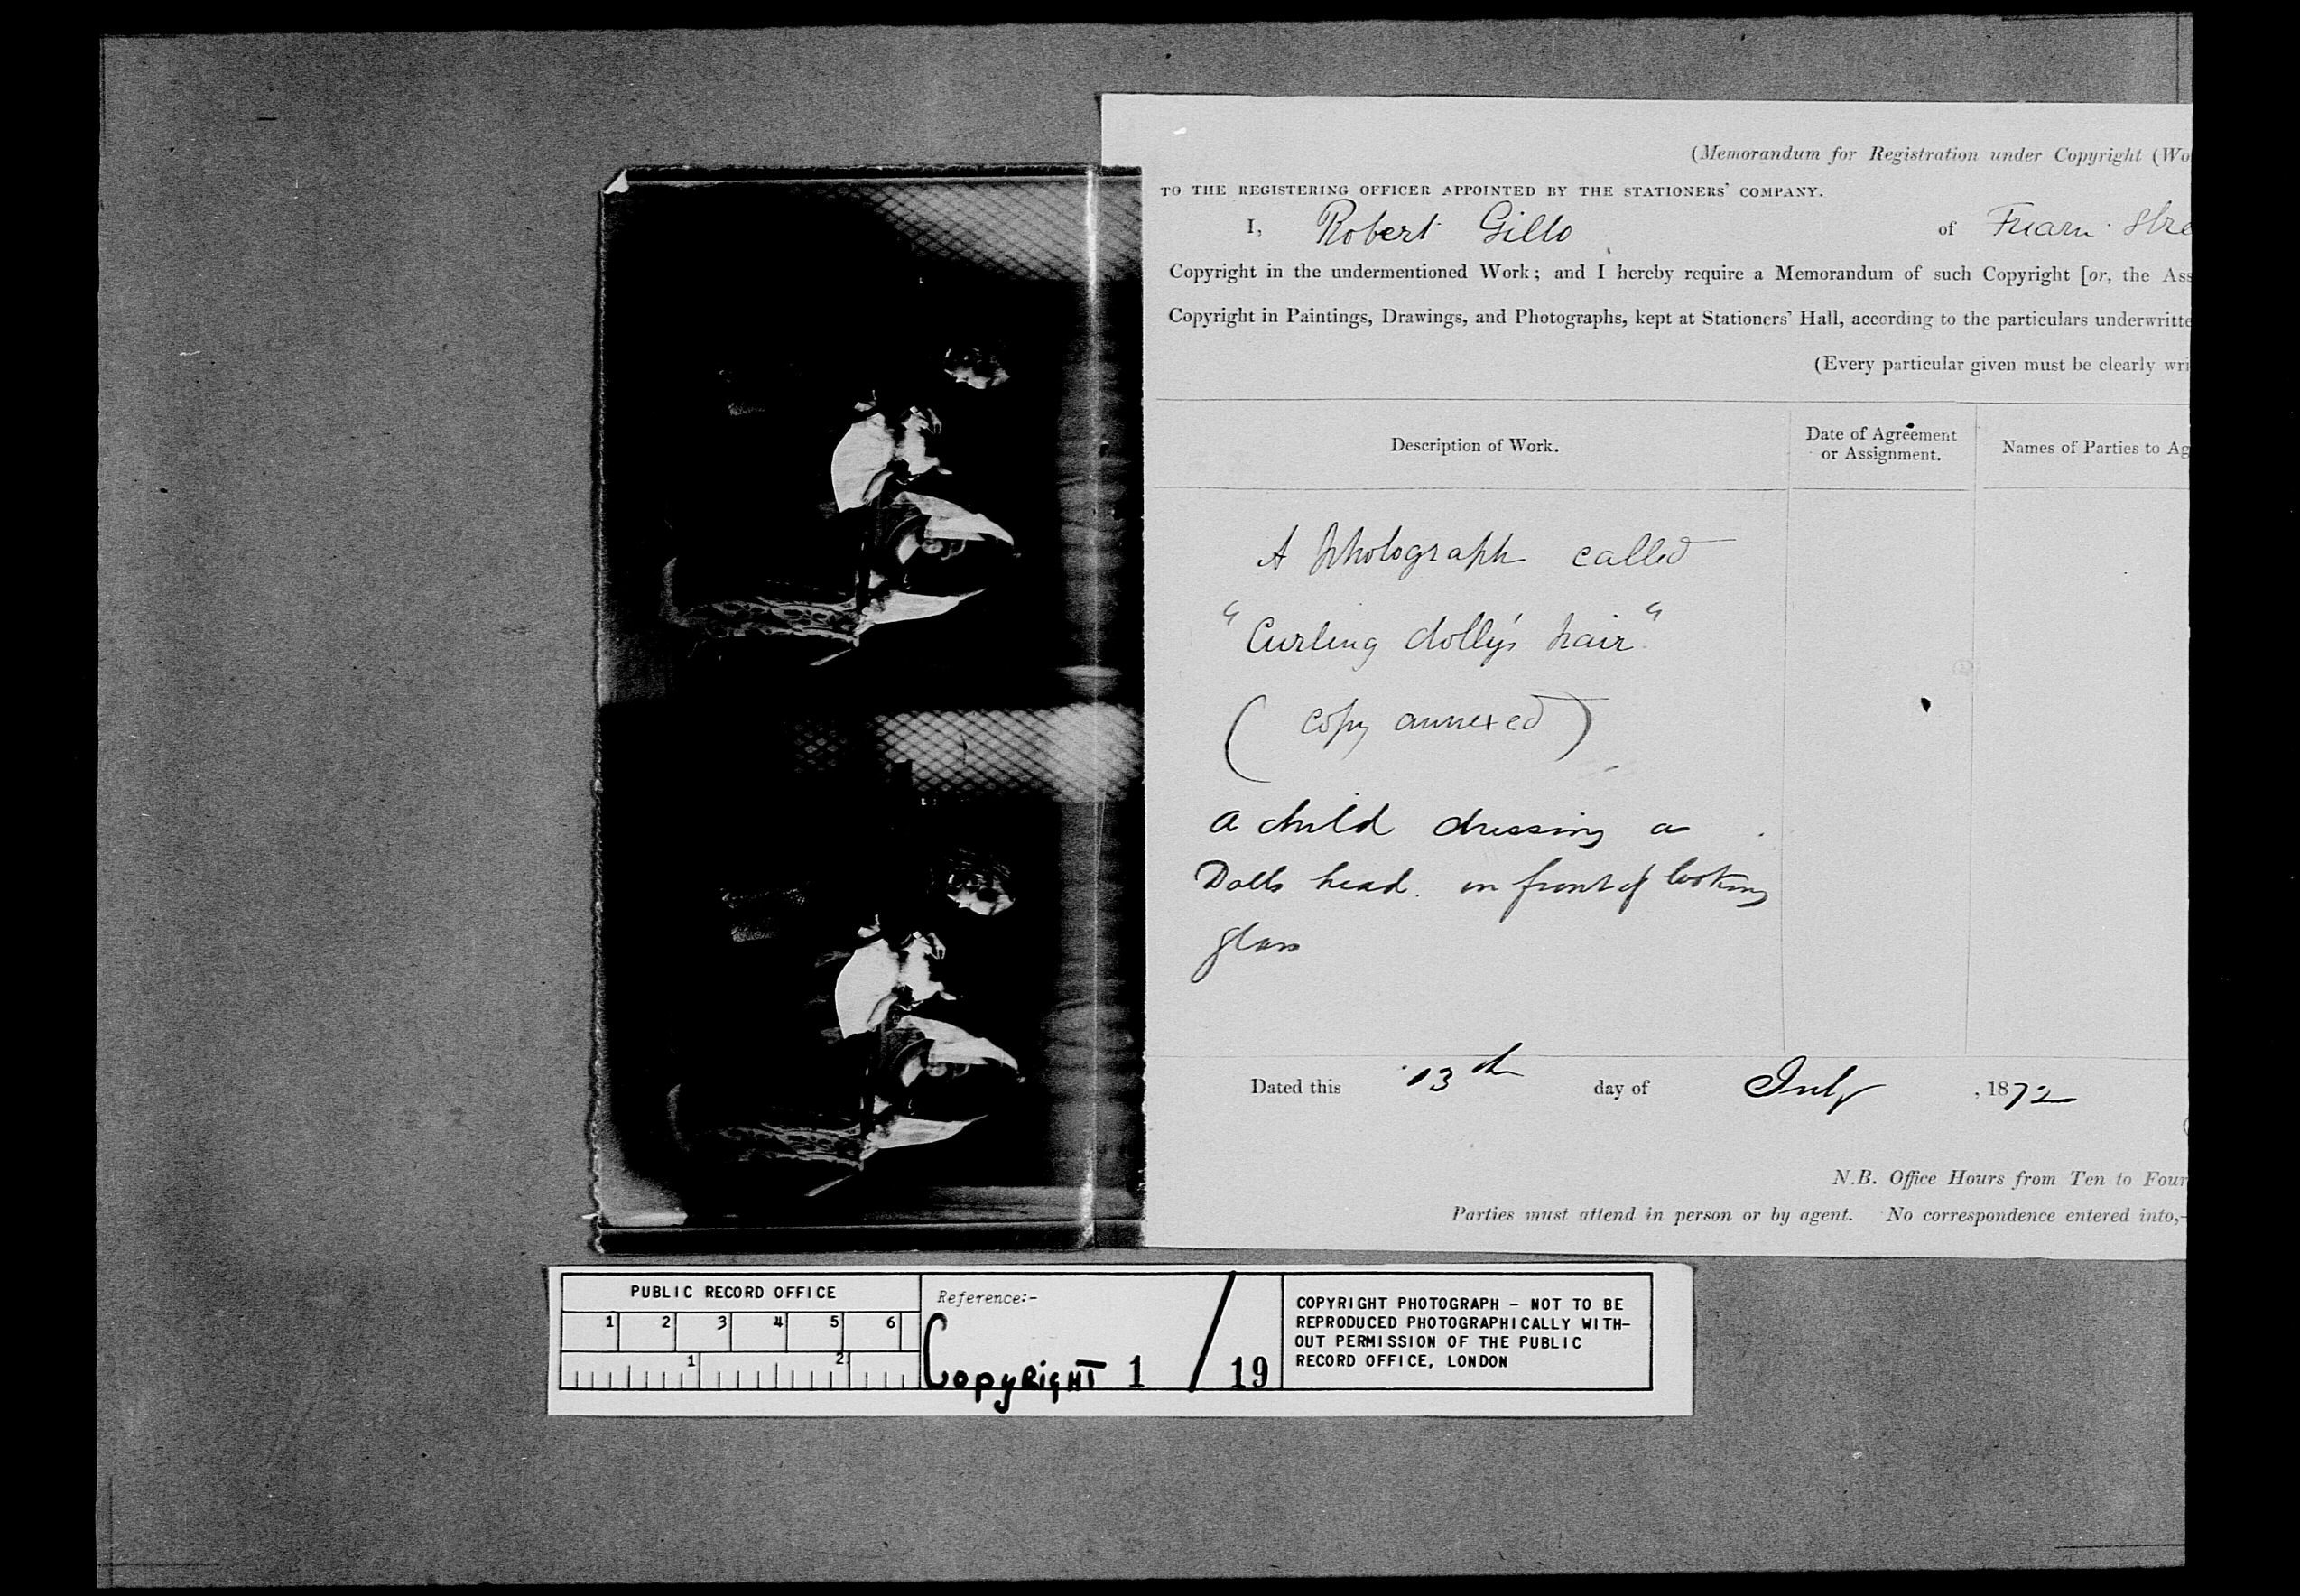 (Memorandum for Registration under Copyright (Wo
TO THE REGISTERING OFFICER APPOINTED BY THE STATIONERS' COMPANY.
I, Robert Gillo of Friarn Stre
Copyright in the undermentioned Work; and I hereby require a Memorandum of such Copyright [or, the Ass
Copyright in Paintings, Drawings, and Photographs, kept at Stationers' Hall, according to the particulars underwritte
(Every particular given must be clearly wri
Description of Work.
Date of Agreement
or Assignment.
Names of Parties to Ag
A photograph called
"Curling dolly's hair."
(copy annexed)
a child dressing a
Dolls head. in front of looking
glass
Dated this 13th day of July, 1872
N.B. Office Hours from Ten to Four
Parties must attend in person or by agent. No correspondence entered into,-
PUBLIC RECORD OFFICE
1 2 3 4 5 6
1 2
Reference:-
COPYRIGHT 1 / 19
COPYRIGHT PHOTOGRAPH - NOT TO BE
REPRODUCED PHOTOGRAPHICALLY WITH-
OUT PERMISSION OF THE PUBLIC
RECORD OFFICE, LONDON